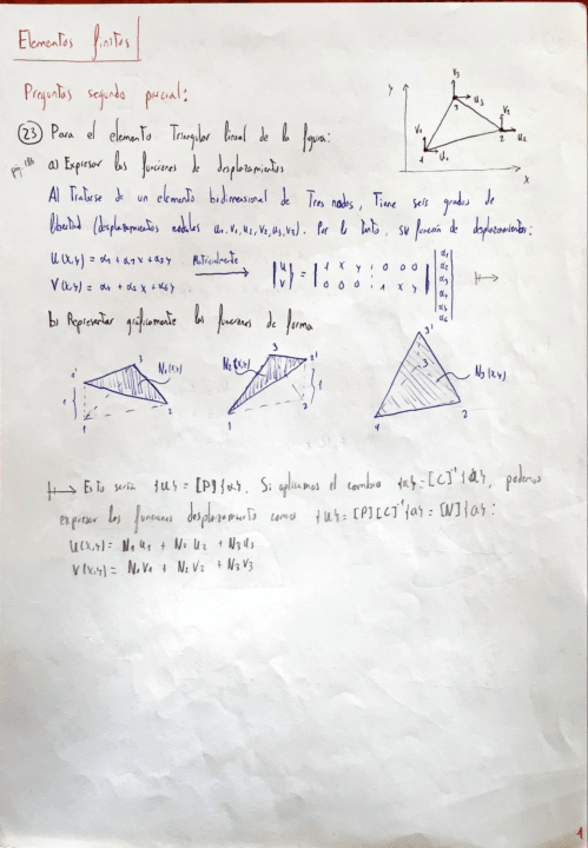 Elementos finitos
Preguntas segundo parcial:
23 Para el elemento Triangular lineal de la figura:
pág. 186
a) Expresar las funciones de desplazamientos
y
x
V3
3 U3
V2
2 U2
V1
1 U1
Al Tratarse de un elemento bidimensional de Tres nodos, Tiene seis grados de
libertad (desplazamientos nodales u1, v1, u2, v2, u3, v3). Por lo Tanto, su función de desplazamientos:
U(x,y) = α1 + α2 x + α3 y Matricialmente |U V| = |1 x y 0 0 0 0 0 0 1 x y| |α1 α2 α3 α4 α5 α6| ↦
V(x,y) = α4 + α5 x + α6 y
b) Representar gráficamente las funciones de forma
1' 3 N1(x,y) 1 1 2
3 2' N2(x,y) 1 1 2
3' 3 N3(x,y) 1 2
↦ Esto sería {u} = [P]{α}. Si aplicamos el cambio {α} = [C]⁻¹{a}, podemos
expresar las funciones desplazamiento como {u} = [P][C]⁻¹{a} = [N]{a}:
U(x,y) = N1 u1 + N2 U2 + N3 u3
V(x,y) = N1 V1 + N2 V2 + N3 V3
1